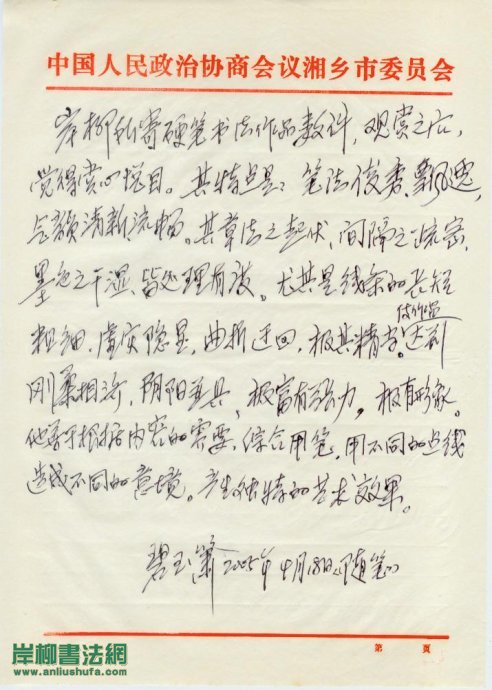 中国人民政治协商会议湘乡市委员会
岸柳所寄硬笔书法作品数件，观赏之后，
觉得赏心悦目。其特点是：笔法俊秀、飘逸，
气韵清新流畅。其章法之起伏，间隔之疏密，
墨色之干湿，皆处理有度。尤其是线条的长短
粗细，虚实隐显，曲折迂回，极其精当。使作品达到
刚柔相济，阴阳互具，极富有张力，极有形象。
他善于根据内容的需要，综合用笔，用不同的点线
造成不同的意境。产生独特的艺术效果。
碧玉箫2005年4月18日（随笔）
第 页
岸柳書法網
www.anliushufa.com